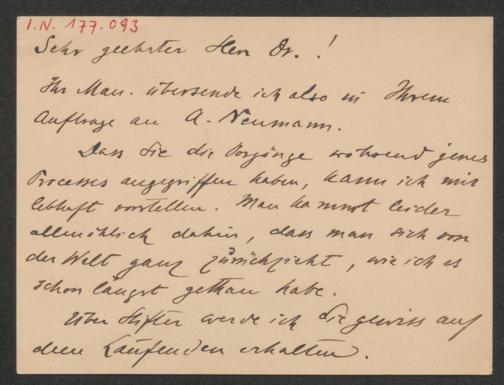 I.N. 177.093
Sehr geehrter Herr Dr.!
Ihr Man. übersende ich also in Ihrem
Auftrage an A. Neumann.
Dass Sie die Vorgänge während jenes
Processes angegriffen haben, kann ich mir
lebhaft vorstellen. Man kommt leider
allmählich dahin, dass man sich von
der Welt ganz zurückzieht, wie ich es
schon längst gethan habe.
Über Stifter werde ich Sie gewiss auf
dem Laufenden erhalten.